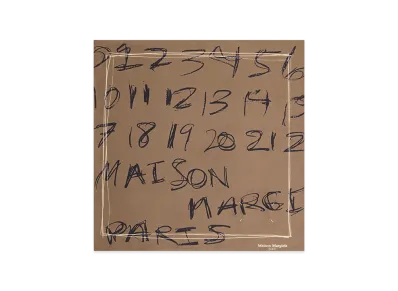 0 1 2 3 4 5 6
10 11 12 13 14 15
7 18 19 20 21 2
MAISON
MARGI
PARIS
Maison Margiela